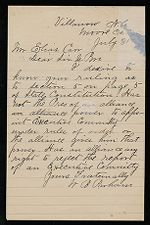 Villanow N.C.
Moore Co
July 8
Mr. Elias Carr
Dear Sir & Bro
I desire to
know your ruling as
to section 5 on page 5
of State Constitution. Has
not the Pres of an alliance
an alliance power to appoint
Executive Committee
under rules of order or
the alliance give him that
power. Has an alliance any
right to reject the report
of an Executive Committee
Yours Fraternally
W.